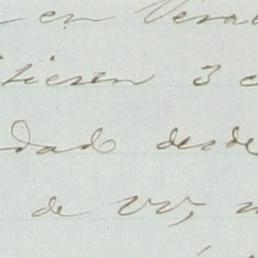 en Vera
tieren 3 c
dad desde
de VV, n